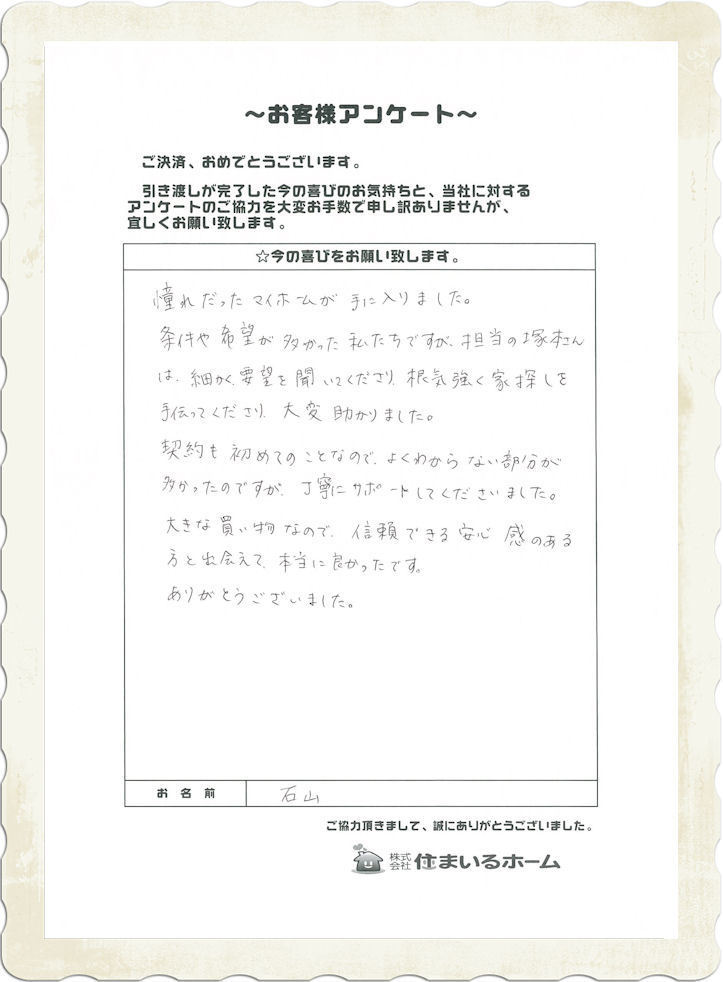 ～お客様アンケート～
ご決済、おめでとうございます。
引き渡しが完了した今の喜びのお気持ちと、当社に対する
アンケートのご協力を大変お手数で申し訳ありませんが、
宜しくお願い致します。
☆今の喜びをお願い致します。
憧れだったマイホームが手に入りました。
条件や希望が多かった私たちですが、担当の塚本さん
は、細かく要望を聞いてくださり、根気強く家探しを
手伝ってくださり、大変助かりました。
契約も初めてのことなので、よくわからない部分が
多かったのですが、丁寧にサポートしてくださいました。
大きな買い物なので、信頼できる安心感のある
方と出会えて、本当に良かったです。
ありがとうございました。
お名前 石山
ご協力頂きまして、誠にありがとうございました。
株式会社 住まいるホーム